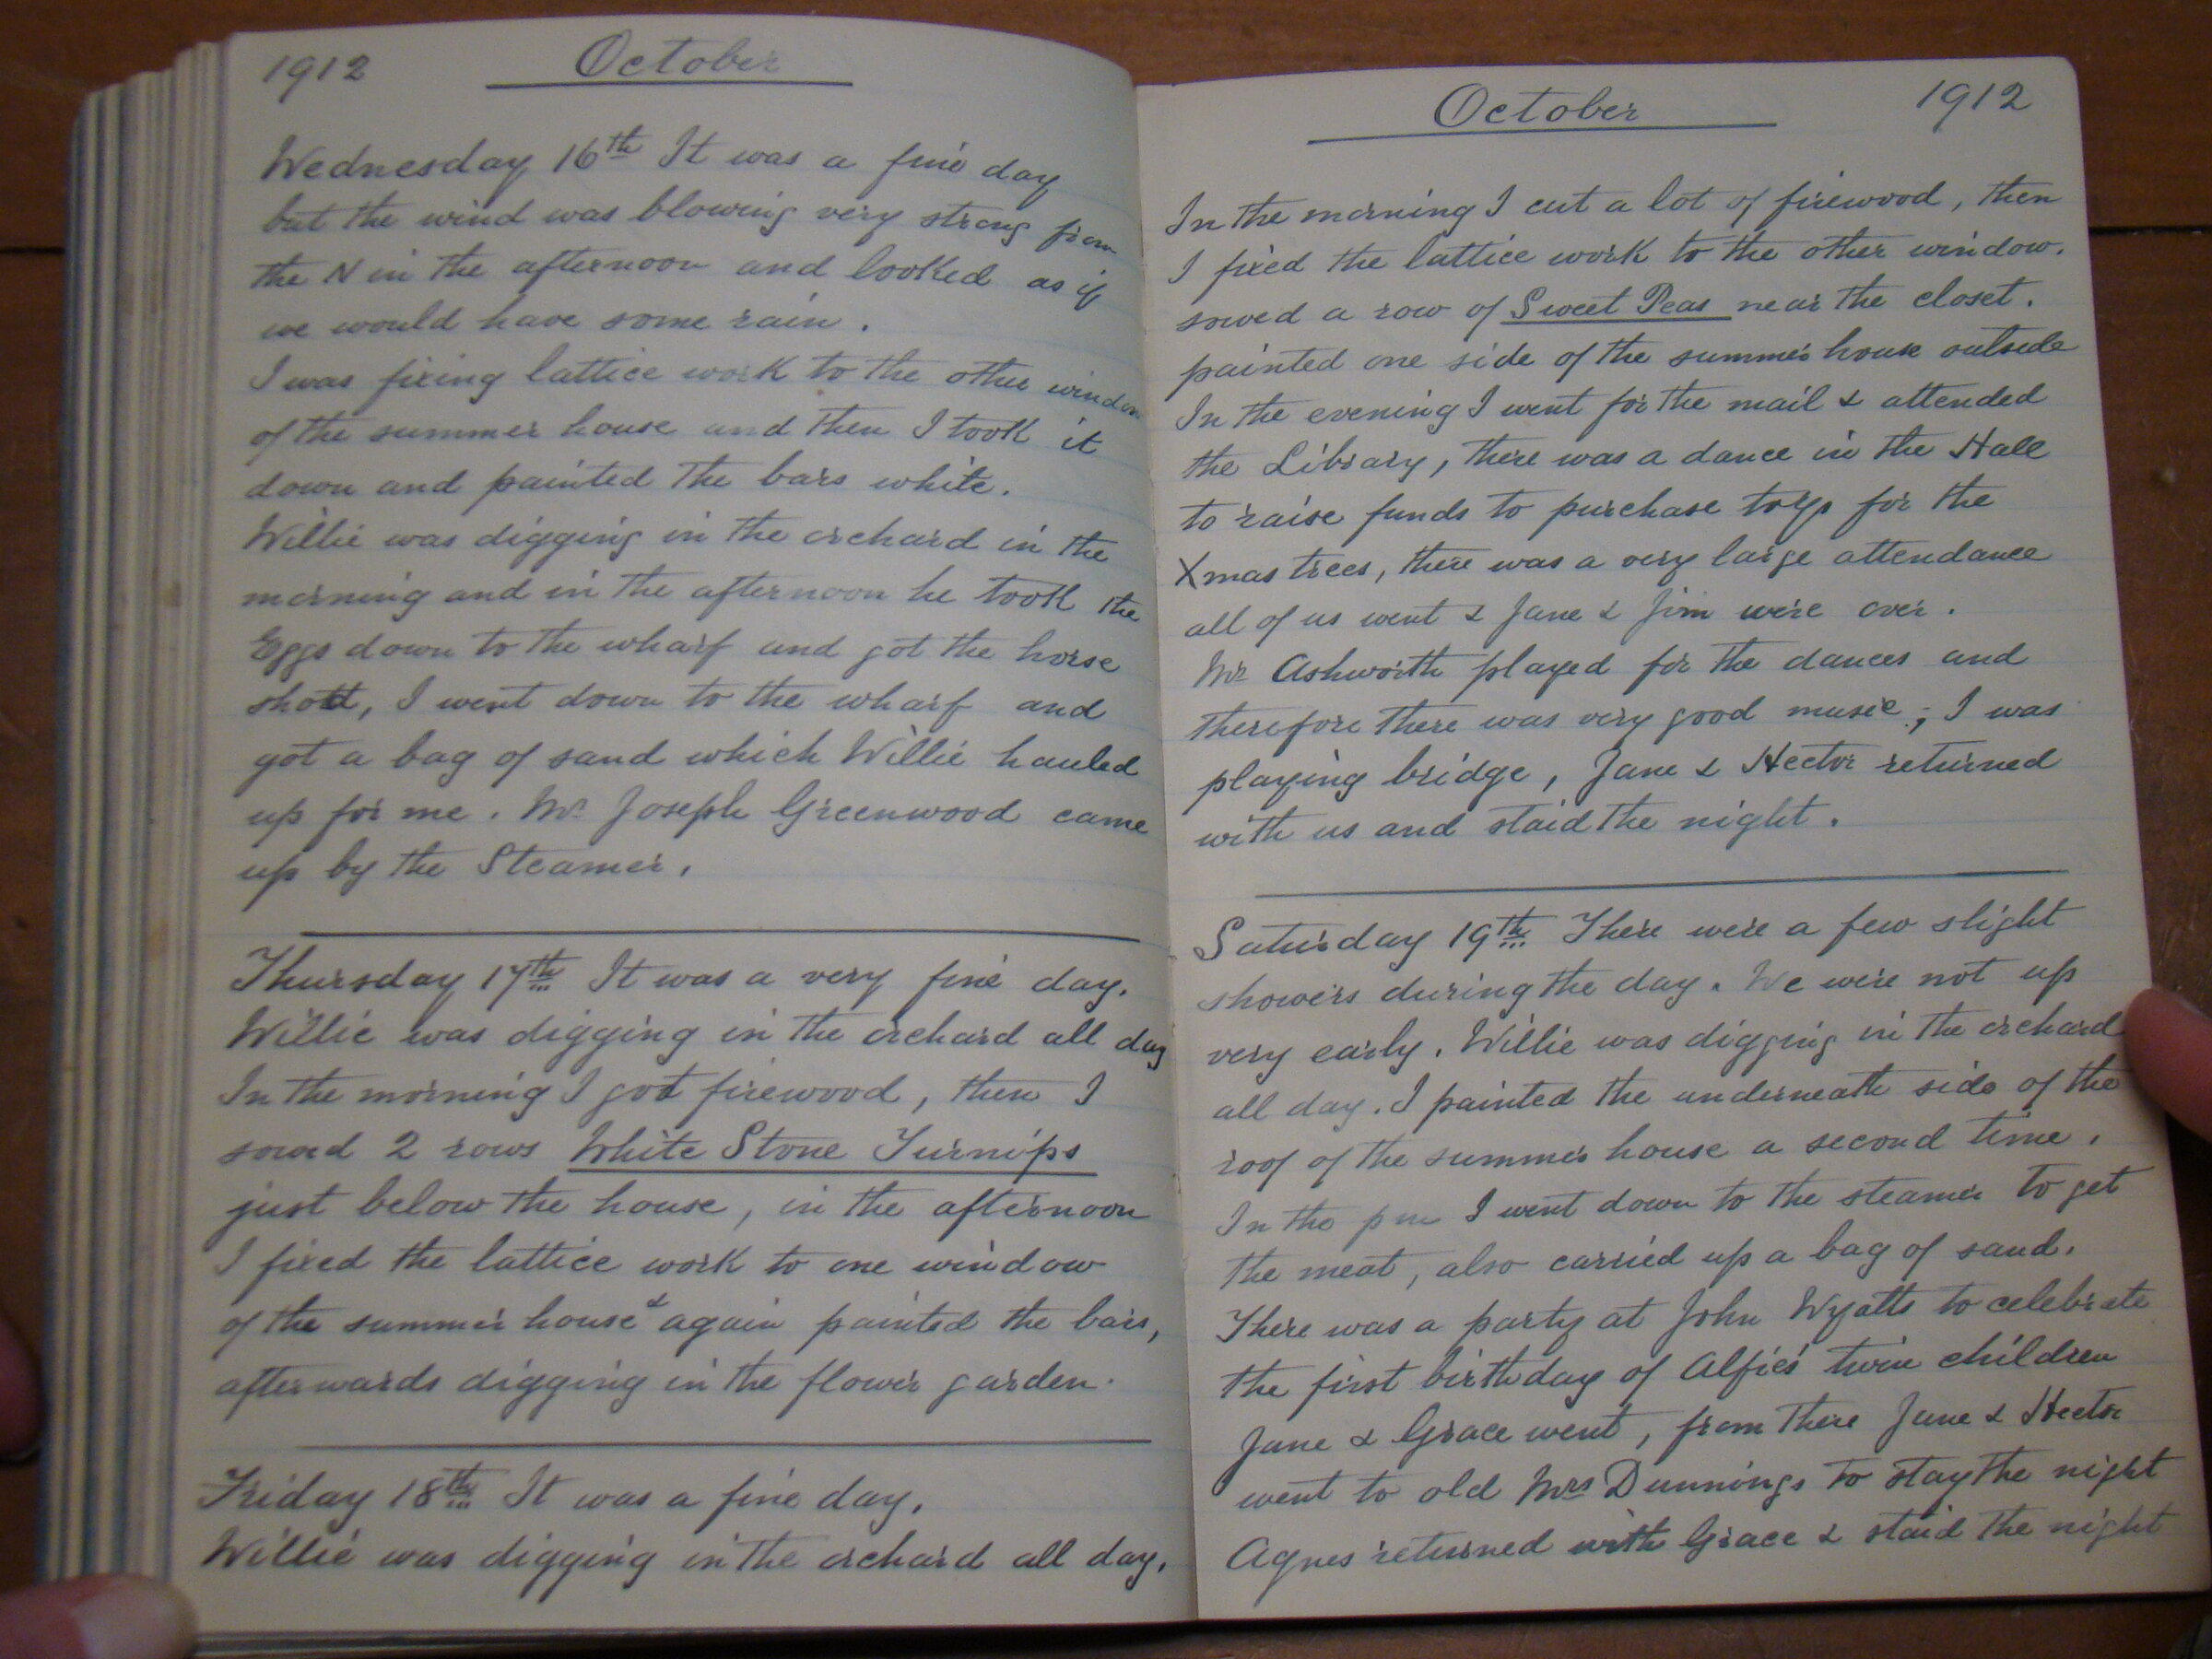 1912 October
Wednesday 16th It was a fine day
but the wind was blowing very strong from
the N in the afternoon and looked as if
we would have some rain.
I was fixing lattice work to the other window
of the summer house and then I took it
down and painted the bars white.
Willie was digging in the orchard in the
morning and in the afternoon he took the
Eggs down to the wharf and got the horse
shod, I went down to the wharf and
got a bag of sand which Willie hauled
up for me. Mr Joseph Greenwood came
up by the Steamer.
Thursday 17th It was a very fine day.
Willie was digging in the orchard all day
In the morning I got firewood, then I
sowed 2 rows White Stone Turnips
just below the house, in the afternoon
I fixed the lattice work to one window
of the summer house & again painted the bars,
afterwards digging in the flower garden.
Friday 18th It was a fine day.
Willie was digging in the orchard all day.
October 1912
In the morning I cut a lot of firewood, then
I fixed the lattice work to the other window.
sowed a row of Sweet Peas near the closet.
painted one side of the summer house outside
In the evening I went for the mail & attended
the Library, there was a dance in the Hall
to raise funds to purchase toys for the
Xmas trees, there was a very large attendance
all of us went & Jane & Jim were over.
Mr Ashworth played for the dances and
therefore there was very good music; I was
playing bridge, Jane & Hector returned
with us and staid the night.
Saturday 19th There were a few slight
showers during the day. We were not up
very early. Willie was digging in the orchard
all day. I painted the underneath side of the
roof of the summer house a second time.
In the pm I went down to the steamer to get
the meat, also carried up a bag of sand.
There was a party at John Wyatts to celebrate
the first birthday of Alfies twin children
Jane & Grace went, from there Jane & Hector
went to old Mrs Dunnings to stay the night
Agnes returned with Grace & staid the night